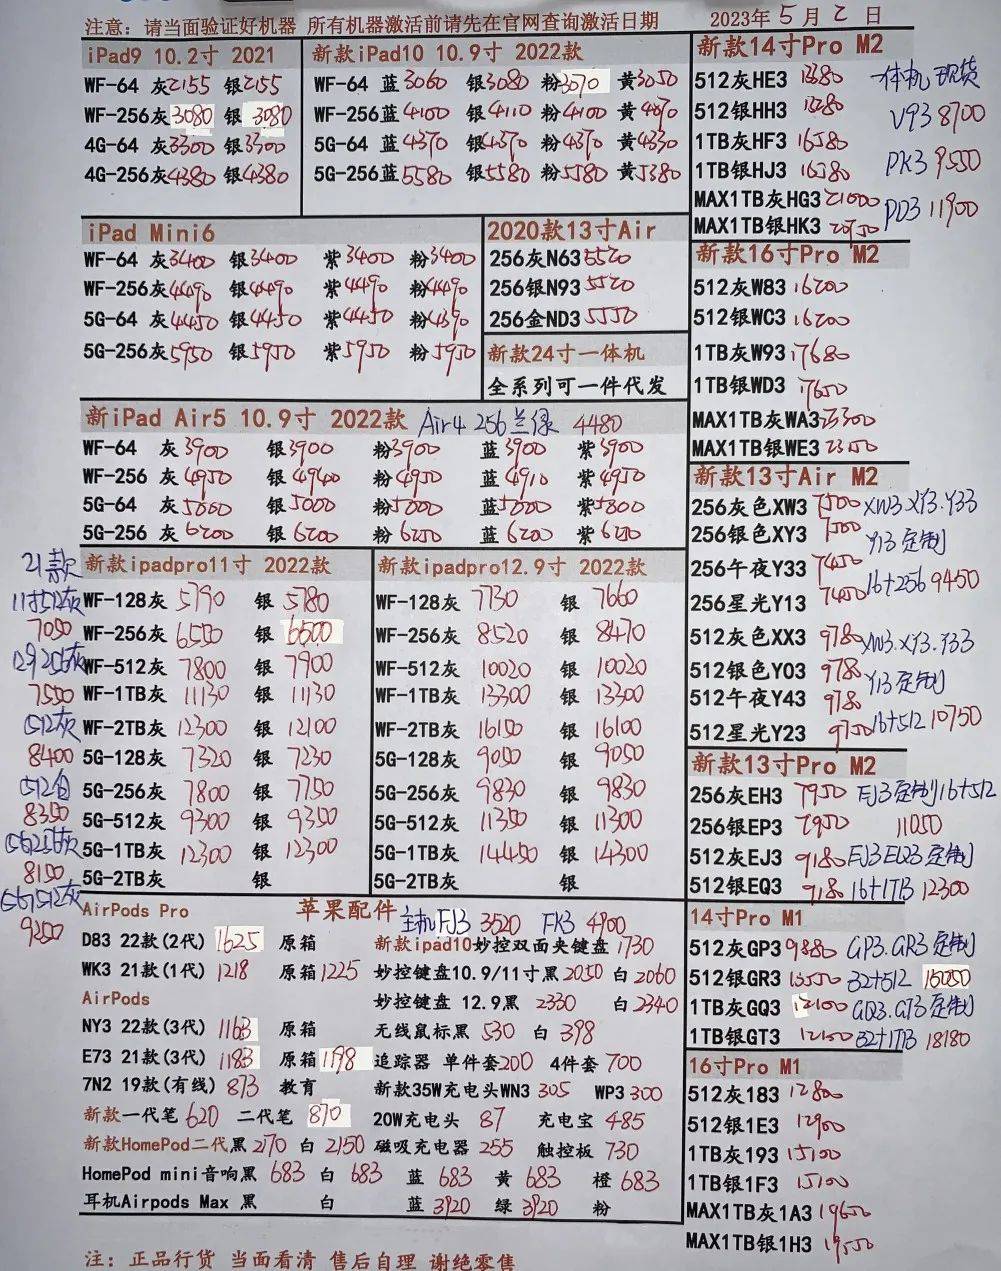 注意：请当面验证好机器 所有机器激活前请先在官网查询激活日期 2023年5月2日
iPad9 10.2寸 2021
WF-64 灰2155 银2155
WF-256灰3080 银3080
4G-64 灰3300 银3300
4G-256灰4380 银4380
新款iPad10 10.9寸 2022款
WF-64 蓝3060 银3080 粉3070 黄3050
WF-256蓝4100 银4110 粉4100 黄4070
5G-64 蓝4370 银4370 粉4370 黄4330
5G-256蓝5580 银5580 粉5580 黄5380
iPad Mini6
WF-64 灰3400 银3400 紫3400 粉3400
WF-256灰4490 银4490 紫4490 粉4490
5G-64 灰4450 银4450 紫4450 粉4390
5G-256灰5950 银5950 紫5950 粉5950
2020款13寸Air
256灰N63 5520
256银N93 5520
256金ND3 5550
新款24寸一体机
全系列可一件代发
新iPad Air5 10.9寸 2022款 Air4 256兰绿 4480
WF-64 灰3900 银3900 粉3900 蓝3900 紫3900
WF-256 灰4950 银4940 粉4950 蓝4910 紫4950
5G-64 灰5000 银5000 粉5000 蓝5000 紫5800
5G-256 灰6200 银6200 粉6250 蓝6200 紫6250
21款
11寸512灰
7050
7550
512灰
8400
512白
8350
8150
9200
新款ipadpro11寸 2022款
WF-128灰 5790 银 5780
WF-256灰 6550 银 6500
WF-512灰 7800 银 7900
WF-1TB灰 11130 银 11130
WF-2TB灰 12300 银 12100
5G-128灰 7320 银 7230
5G-256灰 7800 银 7750
5G-512灰 9300 银 9350
5G-1TB灰 12300 银 12300
5G-2TB灰 银
新款ipadpro12.9寸 2022款
WF-128灰 7730 银 7660
WF-256灰 8520 银 8470
WF-512灰 10020 银 10020
WF-1TB灰 13300 银 13300
WF-2TB灰 16150 银 16100
5G-128灰 9050 银 9050
5G-256灰 9830 银 9830
5G-512灰 11350 银 11300
5G-1TB灰 14450 银 14300
5G-2TB灰 银
苹果配件 主机FJ3 3520 FK3 4900
AirPods Pro
D83 22款(2代) 1625 原箱
WK3 21款(1代) 1218 原箱1225
AirPods
NY3 22款(3代) 1163 原箱
E73 21款(3代) 1183 原箱1198
7N2 19款(有线) 873 教育
新款一代笔 620 二代笔 870
新款HomePod二代黑 白 2150
HomePod mini音响黑 683 白 683 蓝 683 黄 683 橙 683
耳机Airpods Max 黑 白 蓝 3920 绿 3920 粉
新款ipad10妙控双面夹键盘 1730
妙控键盘10.9/11寸黑2050 白2060
妙控键盘 12.9黑 2330 白2340
无线鼠标黑 530 白 398
追踪器 单件套200 4件套 700
新款35W充电头WN3 305 WP3 300
20W充电头 87 充电宝 485
磁吸充电器 255 触控板 730
新款14寸Pro M2
512灰HE3
512银HH3
1TB灰HF3 16580
1TB银HJ3 16580
MAX1TB灰HG3 21000
MAX1TB银HK3 20950
一体机 现货
V93 8700
PK3 9550
PD3 11900
新款16寸Pro M2
512灰W83 16200
512银WC3 16200
1TB灰W93 17680
1TB银WD3 17650
MAX1TB灰WA3
MAX1TB银WE3
新款13寸Air M2
256灰色XW3 7500 XW3.XY3.Y33
256银色XY3 7500 Y13 定制
256午夜Y33 7450
256星光Y13 7450 16+256 9450
512灰色XX3 9780 XW3.XY3.Y33
512银色Y03 9780 Y13 定制
512午夜Y43 9780
512星光Y23 9750 16+512 10750
新款13寸Pro M2
256灰EH3 7950 EJ3定制16+512
256银EP3 7950 11050
512灰EJ3 9180 EJ3 EQ3 定制
512银EQ3 9180 16+1TB 12300
14寸Pro M1
512灰GP3 9880 GP3.GR3 定制
512银GR3 32+512 16050
1TB灰GQ3 12100 GQ3.GT3 定制
1TB银GT3 12100 32+1TB 18180
16寸Pro M1
512灰183 12800
512银1E3 12900
1TB灰193 15100
1TB银1F3 15100
MAX1TB灰1A3 19650
MAX1TB银1H3 19550
注：正品行货 当面看清 售后自理 谢绝零售